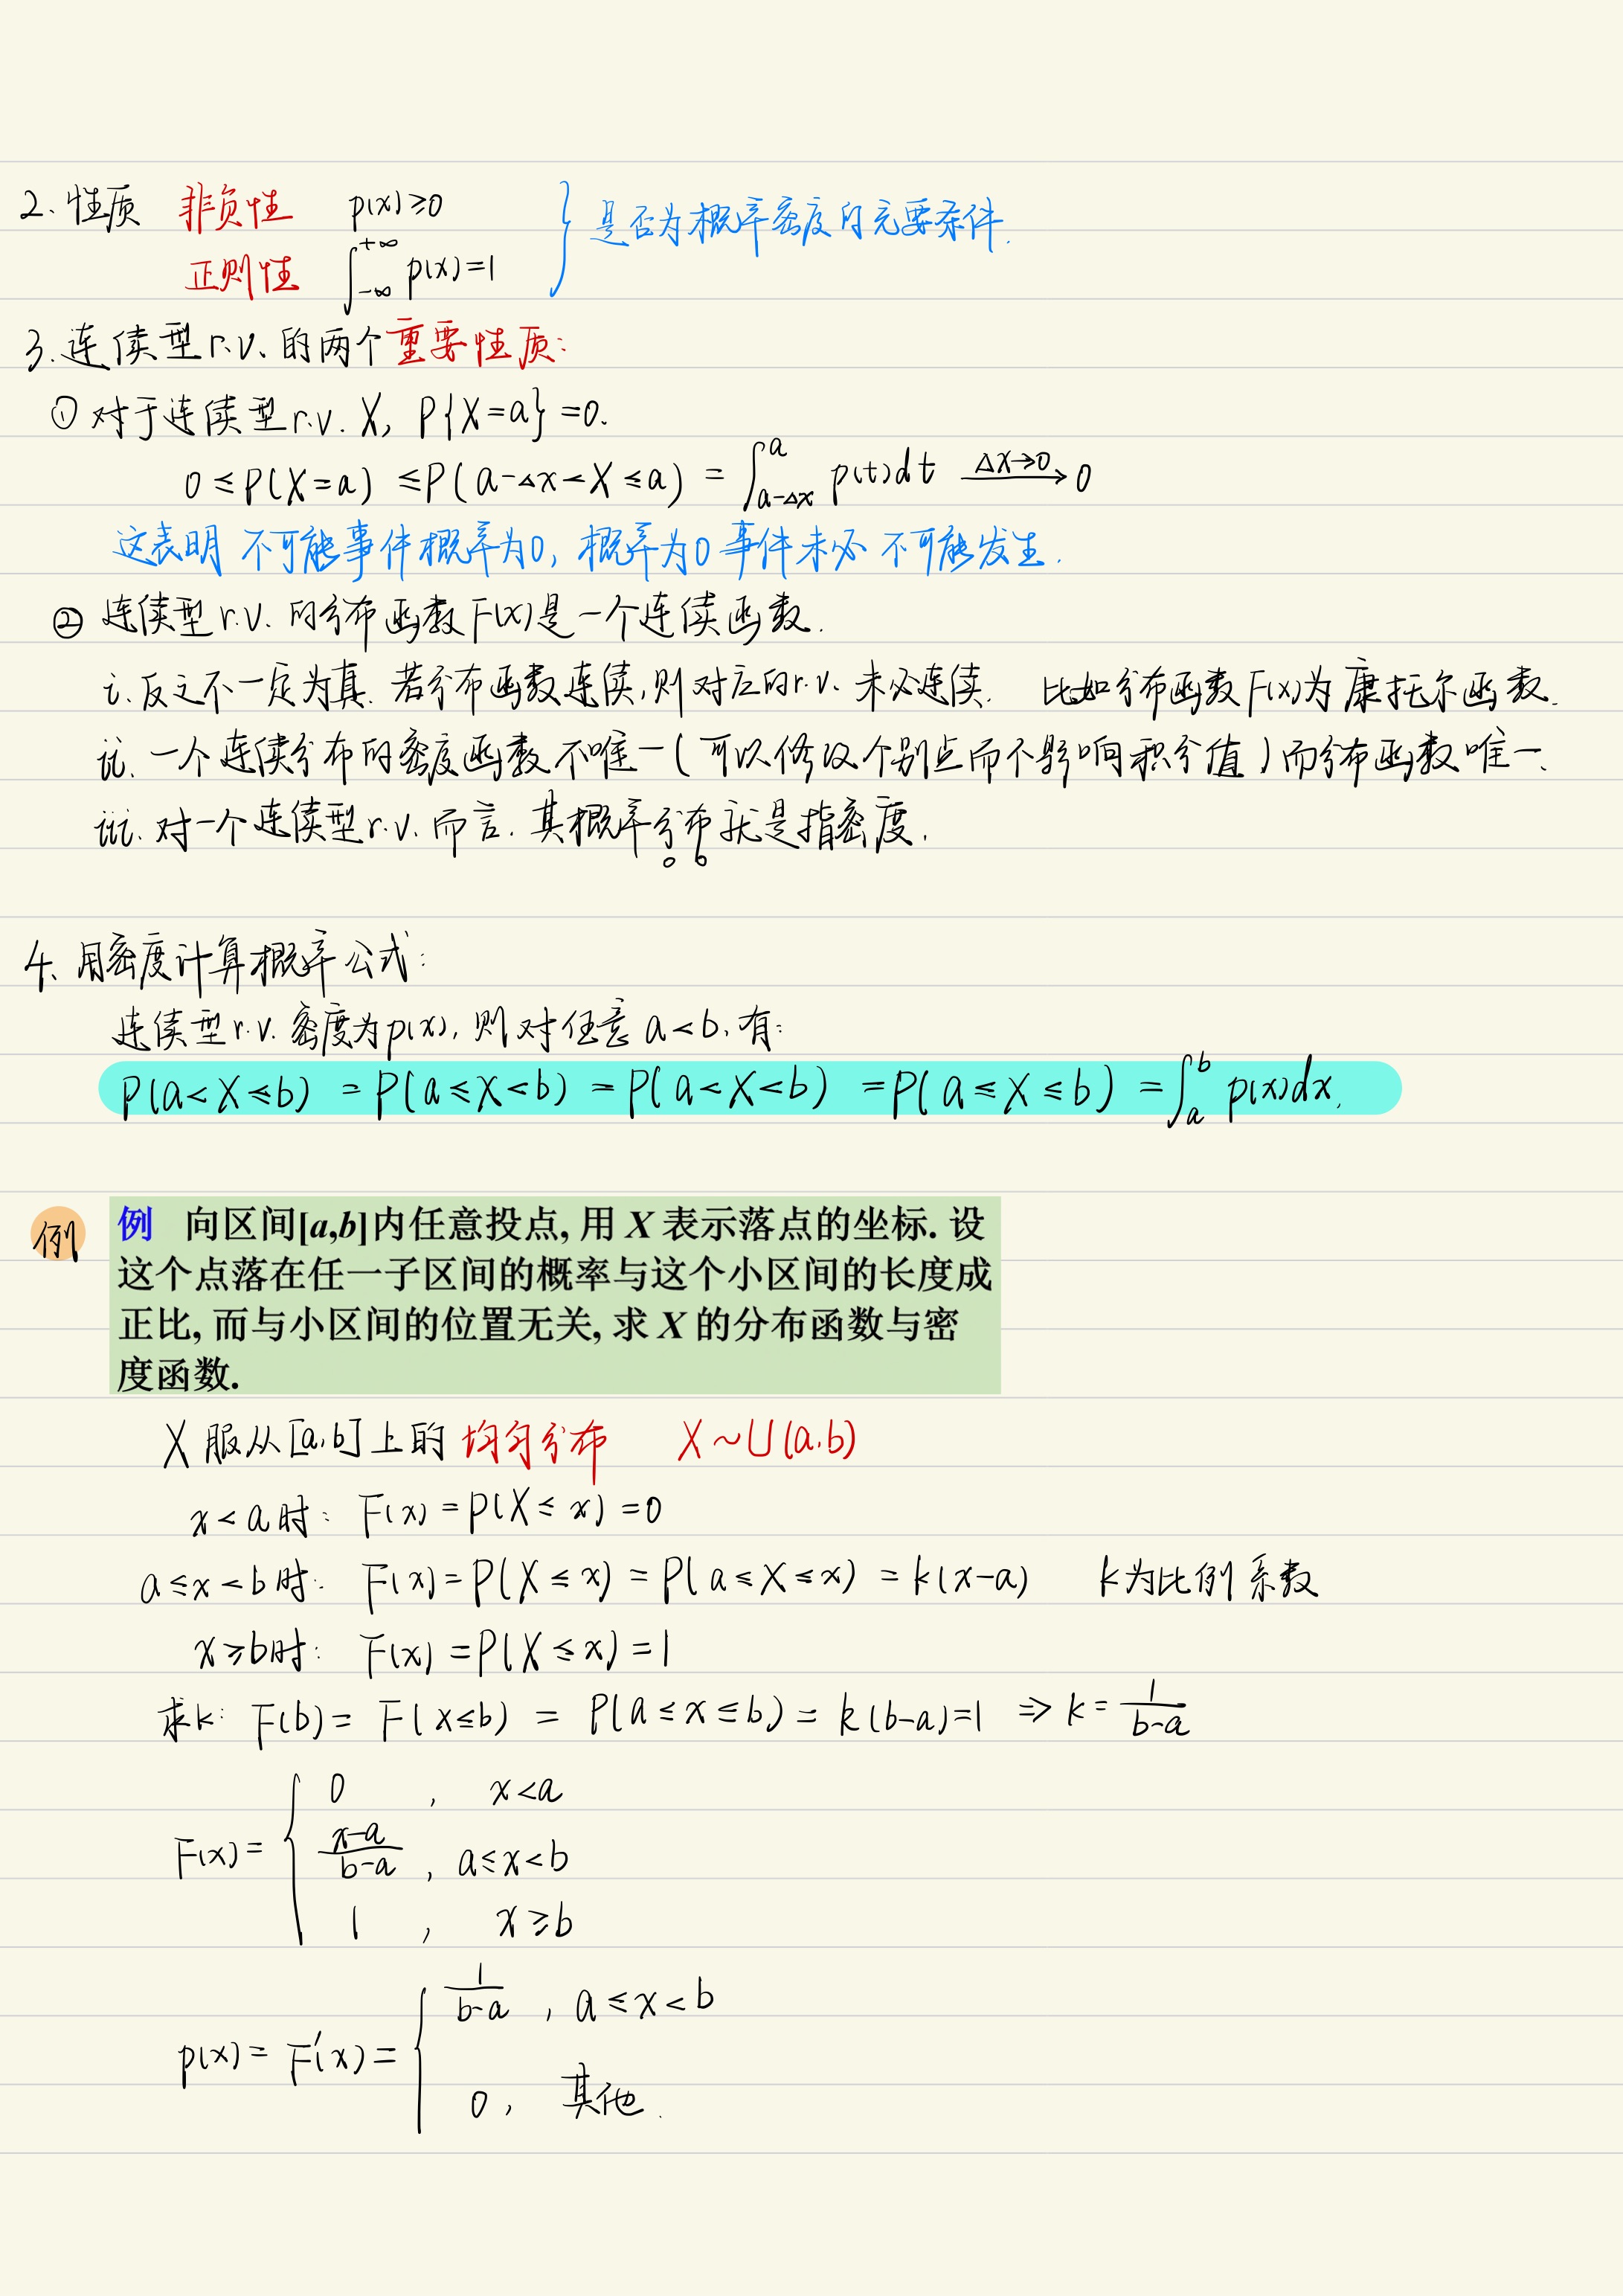 2、性质 非负性 p(x)≥0 } 是否为概率密度的充要条件.
正则性 ∫_{-∞}^{+∞} p(x)=1
3.连续型r.v.的两个重要性质:
① 对于连续型r.v. X, P{X=a}=0.
0≤P(X=a) ≤P(a-Δx<X≤a) = ∫_{a-Δx}^{a} p(t)dt —Δx→0→ 0
这表明 不可能事件概率为0, 概率为0事件未必 不可能发生.
② 连续型r.v. 的分布函数F(x)是一个连续函数.
i.反之不一定为真. 若分布函数连续,则对应的r.v. 未必连续. 比如分布函数F(x)为康托尔函数.
ii. 一个连续分布的密度函数不唯一(可以修改个别点而不影响积分值)而分布函数唯一.
iii. 对一个连续型r.v.而言. 其概率分布就是指密度.
4、用密度计算概率公式:
连续型r.v. 密度为p(x), 则对任意 a<b, 有:
P(a<X≤b) = P(a≤X<b) = P(a<X<b) = P(a≤X≤b) = ∫_{a}^{b} p(x)dx.
例 例 向区间[a,b]内任意投点, 用 X 表示落点的坐标. 设
这个点落在任一子区间的概率与这个小区间的长度成
正比, 而与小区间的位置无关, 求 X 的分布函数与密
度函数.
X 服从[a,b]上的 均匀分布 X~U(a,b)
x<a时: F(x)=P(X≤x)=0
a≤x<b时: F(x)=P(X≤x)=P(a≤X≤x)=k(x-a) k为比例系数
x≥b时: F(x)=P(X≤x)=1
求k: F(b)= F(x≤b) = P(a≤x≤b)= k(b-a)=1 ⇒ k= 1/(b-a)
F(x)= { 0 , x<a
(x-a)/(b-a) , a≤x<b
1 , x≥b
p(x)= F'(x)= { 1/(b-a) , a≤x<b
0, 其他.